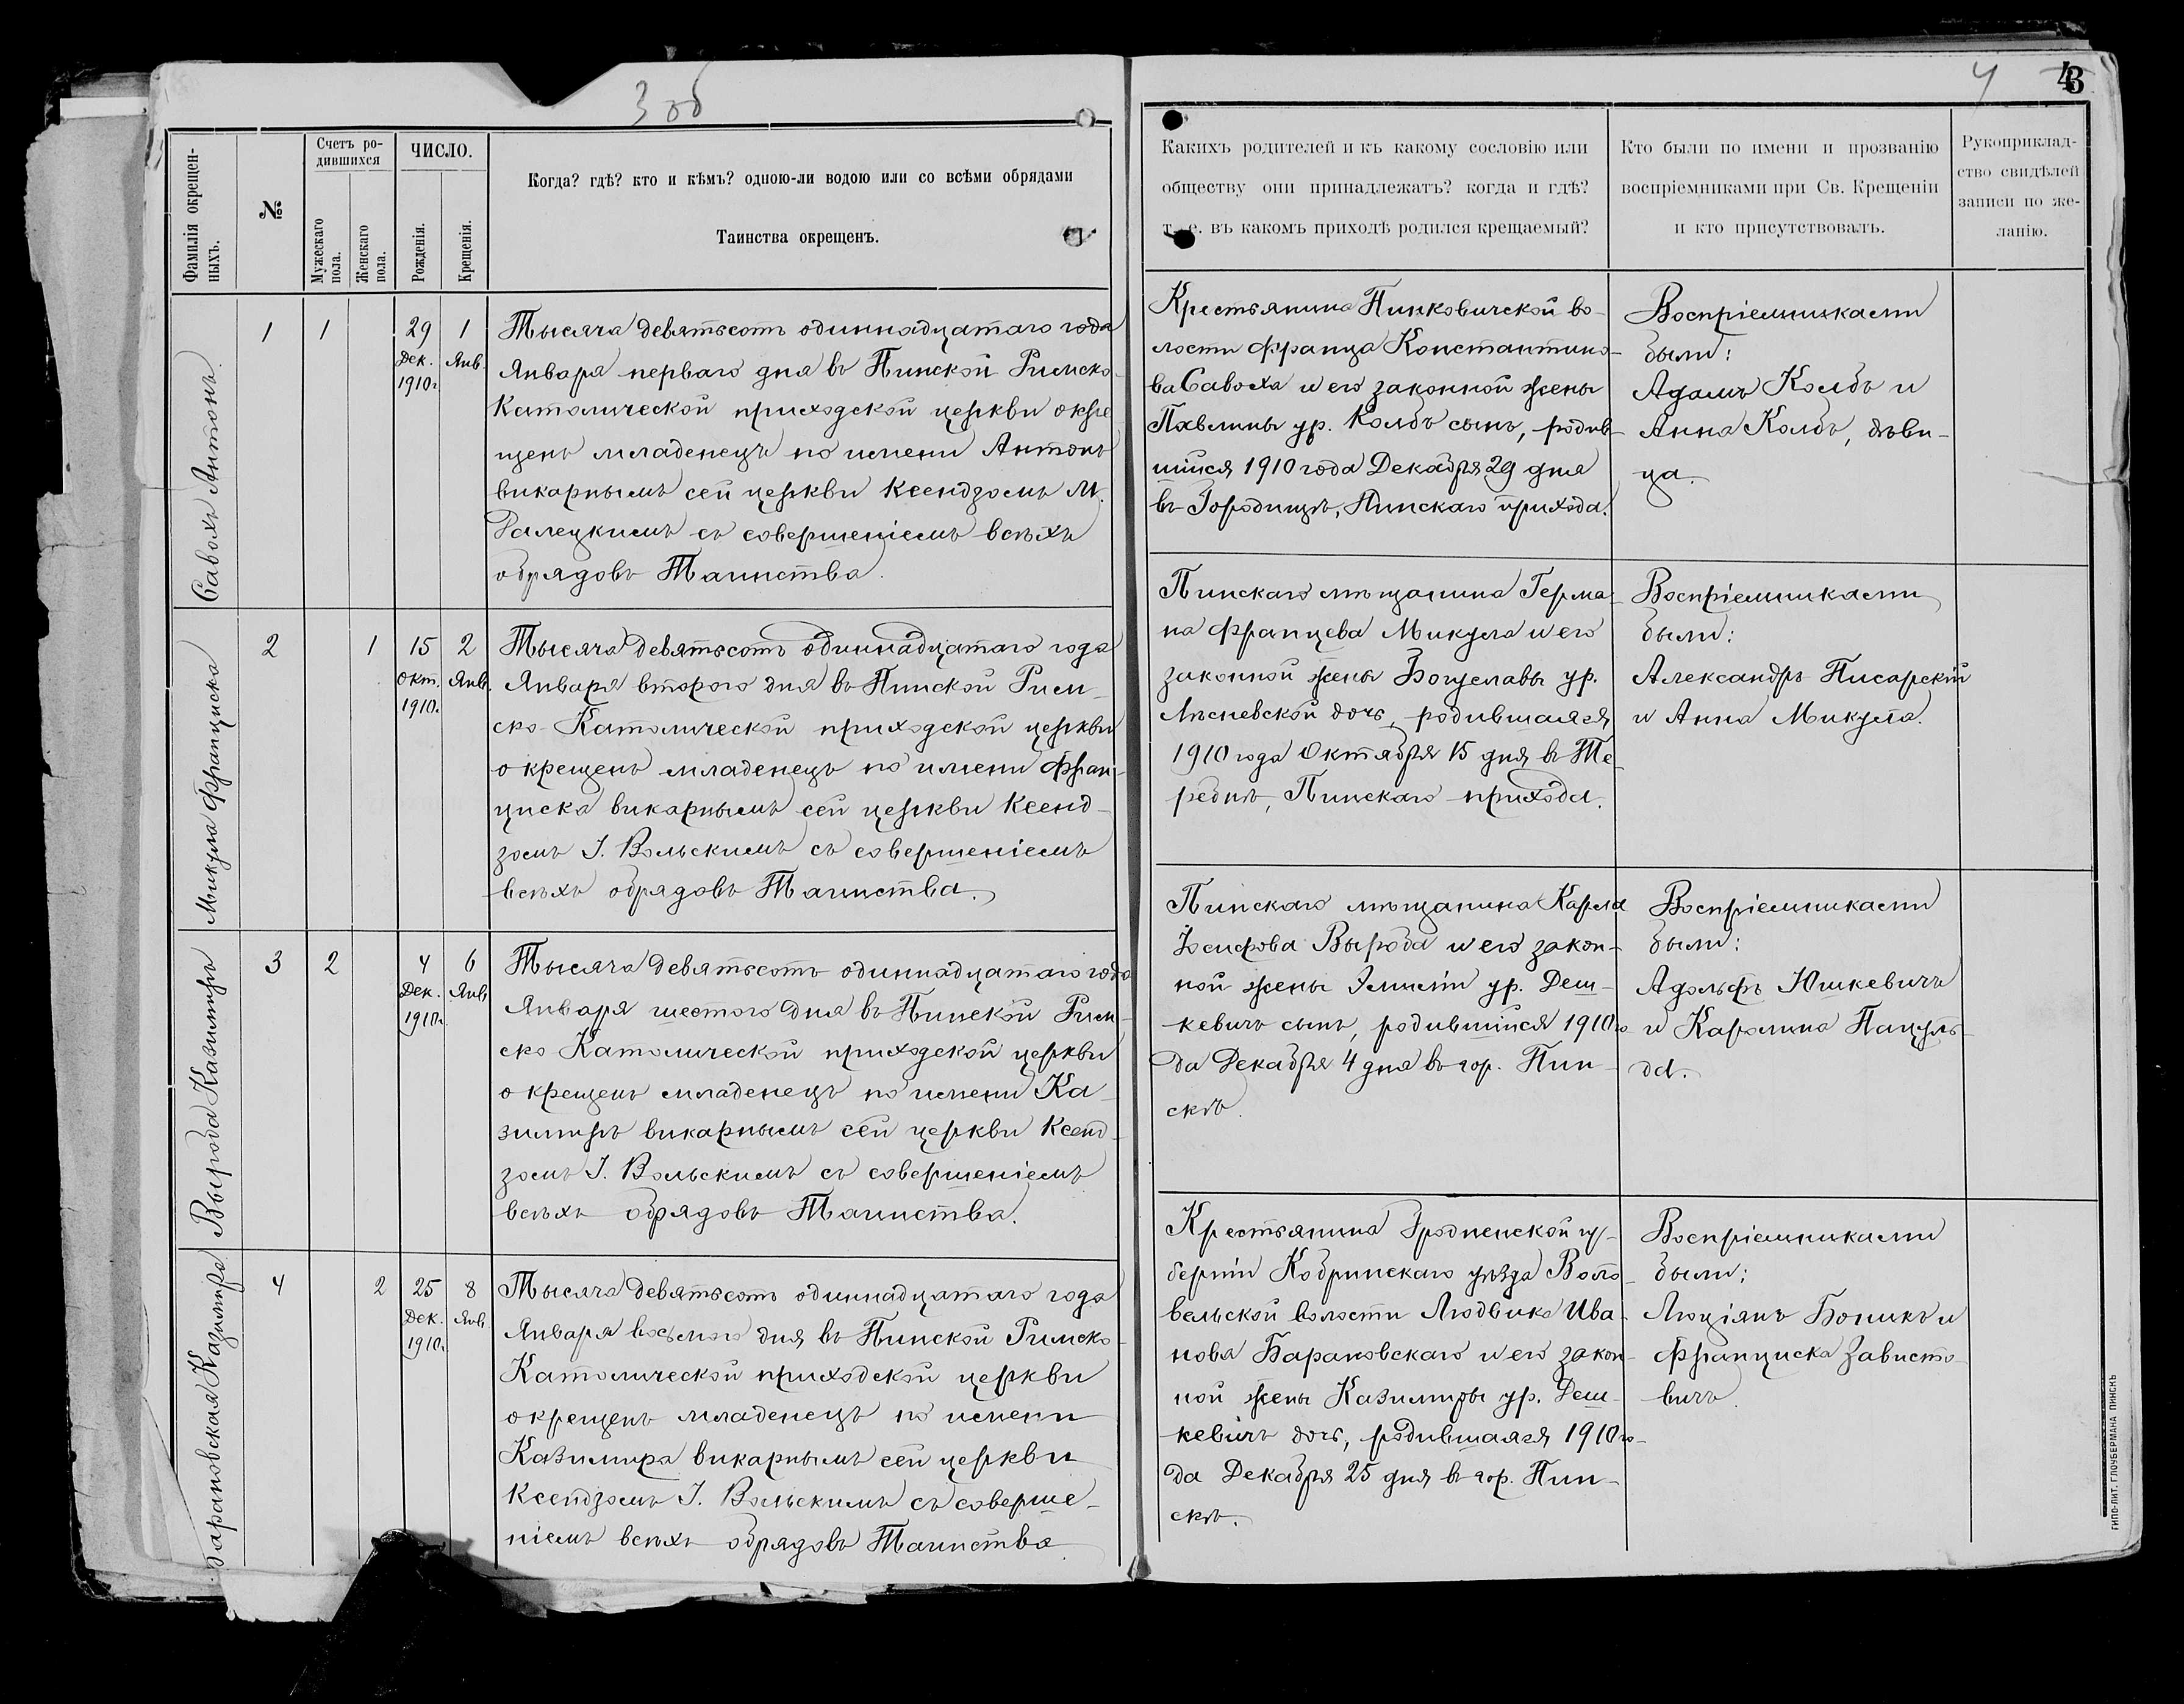 3 об
4
43
Фамилія окрещен-
ныхъ.
№
Счетъ ро-
дившихся
Мужескаго
пола.
Женскаго
пола.
ЧИСЛО.
Рожденія.
Крещенія.
Когда? гдѣ? кто и кѣмъ? одною-ли водою или со всѣми обрядами
Таинства окрещенъ.
Какихъ родителей и къ какому сословію или
обществу они принадлежатъ? когда и гдѣ?
т. е. въ какомъ приходѣ родился крещаемый?
Кто были по имени и прозванію
воспріемниками при Св. Крещеніи
и кто присутствовалъ.
Рукоприклад-
ство свидѣлей
записи по же-
ланію.
Савохъ Антонъ.
1
1
29
Дек.
1910г.
1
Янв.
Тысяча девятьсотъ одиннадцатаго года
Января перваго дня въ Пинской Римско-
Католической приходской церкви окре
щенъ младенецъ по имени Антонъ
викарнымъ сей церкви Ксендзомъ М.
Ралецкимъ съ совершеніемъ всѣхъ
обрядовъ Таинства.
Крестьянина Пинковичской во-
лости Франца Константино-
ва Савоха и его законной жены
Павлины ур. Колбъ сынъ, родив-
шійся 1910 года Декабря 29 дня
въ Городищѣ, Пинскаго прихода.
Воспріемниками
были:
Адамъ Колбъ и
Анна Колбъ, дѣви-
ца.
Микула Франциска
2
1
15
Окт.
1910г.
2
Янв.
Тысяча девятьсотъ одиннадцатаго года
Января второго дня въ Пинской Рим-
ско-Католической приходской церкви
окрещенъ младенецъ по имени Фран-
циска викарнымъ сей церкви Ксенд-
зомъ І. Вольскимъ съ совершеніемъ
всѣхъ обрядовъ Таинства.
Пинскаго мѣщанина Герма-
на Францева Микула и его
законной жены Богуславы ур.
Лисневской дочь, родившаяся
1910 года Октября 15 дня въ Те-
ребнѣ, Пинскаго прихода.
Воспріемниками
были:
Александръ Писарскій
и Анна Микула.
Вырода Казимиръ
3
2
4
Дек.
1910г.
6
Янв.
Тысяча девятьсотъ одиннадцатаго года
Января шестого дня въ Пинской Рим-
ско Католической приходской церкви
окрещенъ младенецъ по имени Ка-
зимиръ викарнымъ сей церкви Ксенд-
зомъ І. Вольскимъ съ совершеніемъ
всѣхъ обрядовъ Таинства.
Пинскаго мѣщанина Карла
Іосифова Вырода и его закон-
ной жены Эмиліи ур. Деш-
кевичъ сынъ, родившійся 1910 го-
да Декабря 4 дня въ гор. Пин-
скѣ.
Воспріемниками
были:
Адольфъ Юшкевичъ
и Каролина Пацуль-
да.
Барановская Казимира
4
2
25
Дек.
1910г.
8
Янв.
Тысяча девятьсотъ одиннадцатаго года
Января восьмого дня въ Пинской Римско-
Католической приходской церкви
окрещенъ младенецъ по имени
Казимира викарнымъ сей церкви
Ксендзомъ І. Вольскимъ съ соверше-
ніемъ всѣхъ обрядовъ Таинства
Крестьянина Гродненской гу-
берніи Кобринскаго уѣзда Воло-
вельской волости Людвика Ива-
нова Барановскаго и его закон-
ной жены Казимиры ур. Деш-
кевичъ дочь, родившаяся 1910 го-
да Декабря 25 дня въ гор. Пин-
скѣ.
Воспріемниками
были:
Люціянъ Боникъ и
Франциска Зависто-
вичъ.
ТИПО-ЛИТ. ГЛОУБЕРМАНА ПИНСКЪ